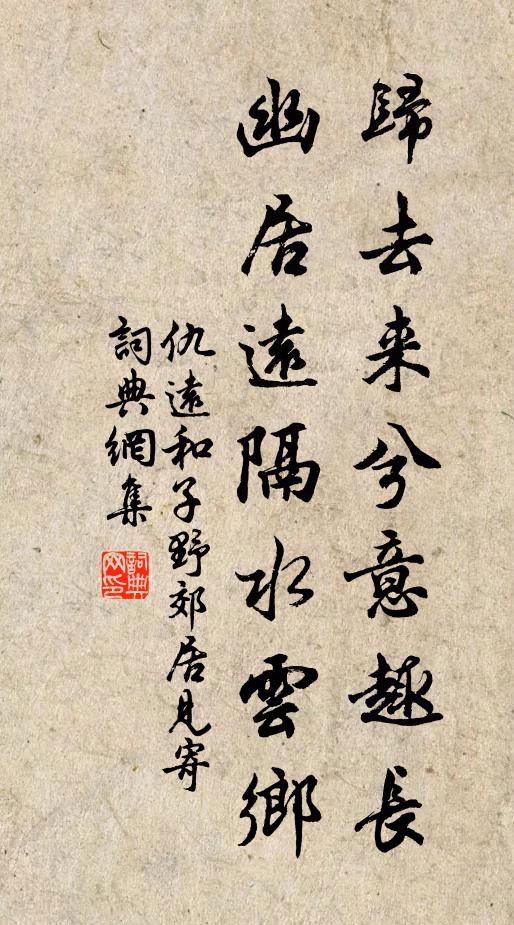 歸去来兮意趣長
幽居遠隔水雲鄉
仇遠和子野郊居見寄
詞典網集
詞典网印